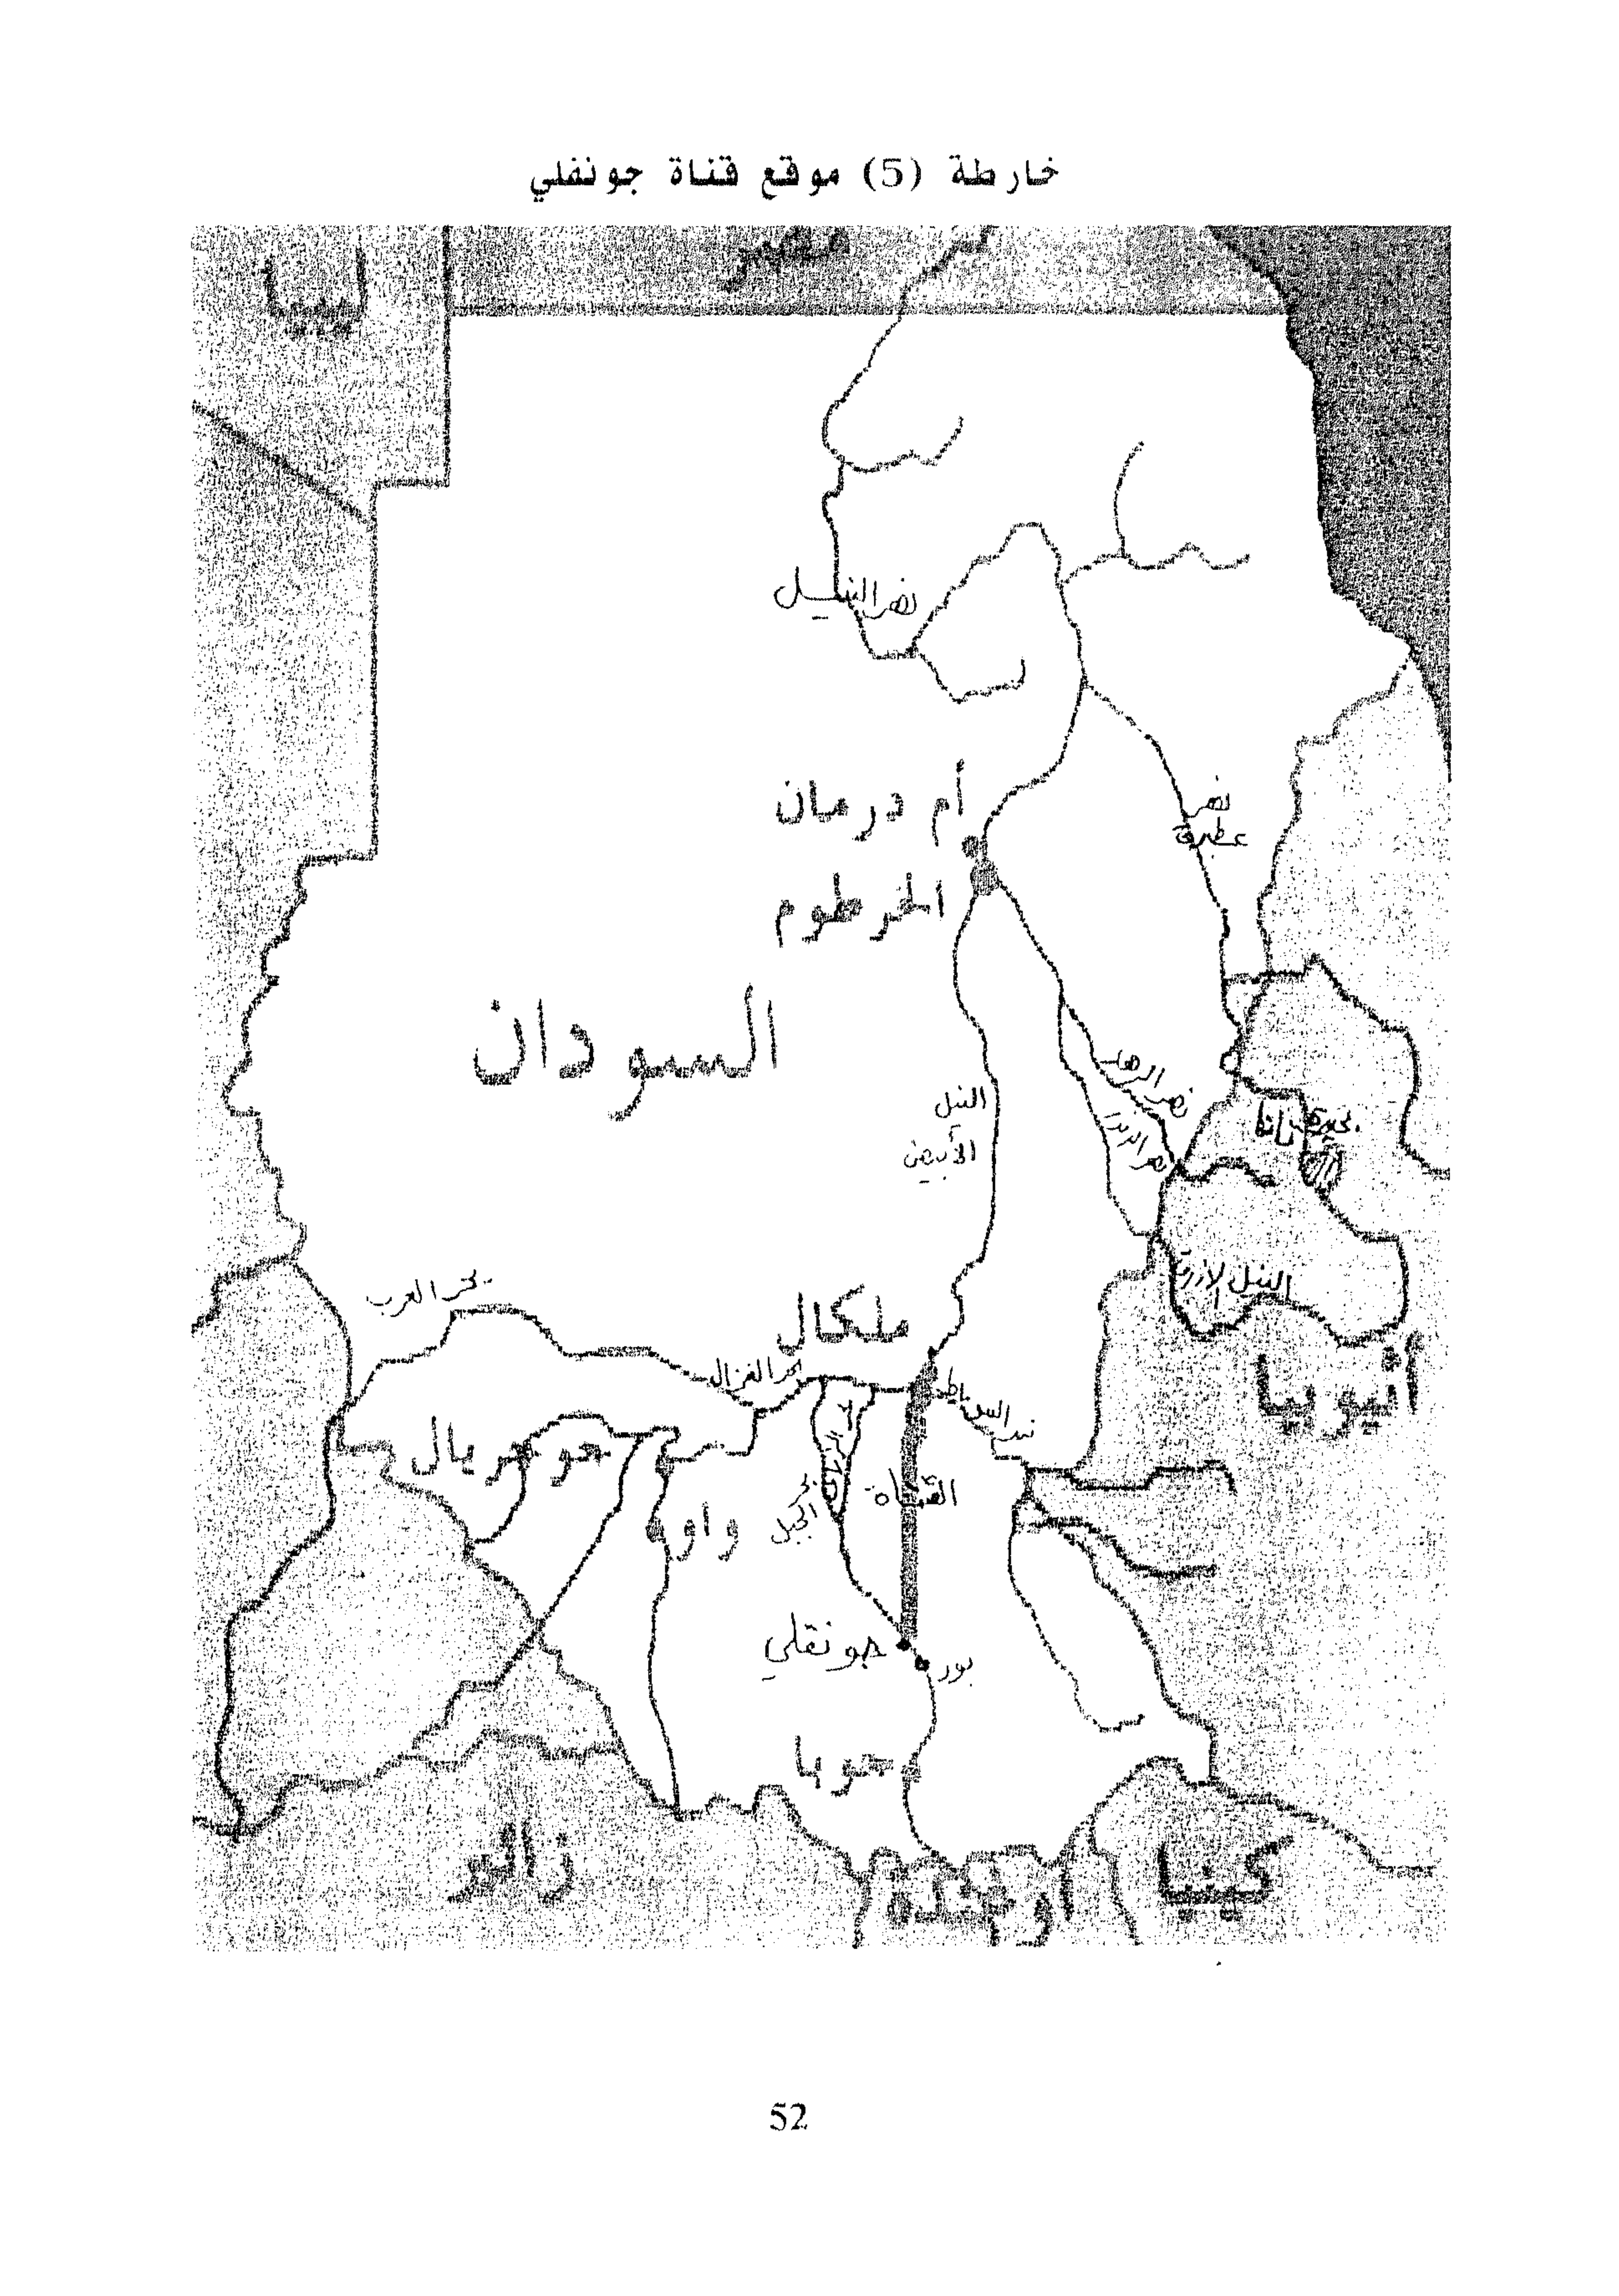 خارطة (5) موقع قناة جونفلي
مصر
ليبيا
نهر النيل
أم درمان
نهر
عطبرة
الخرطوم
السودان
النيل
الأبيض
نهر الرهد
نهر الدندر
بحيرة تانا
النيل الازرق
بحر العرب
ملكال
بحر الغزال
أثيوبيا
جوجريال
القناة
بحر
الجبل
واو
جونقلي
بور
جوبا
زائير
أوغندة
كينيا
52